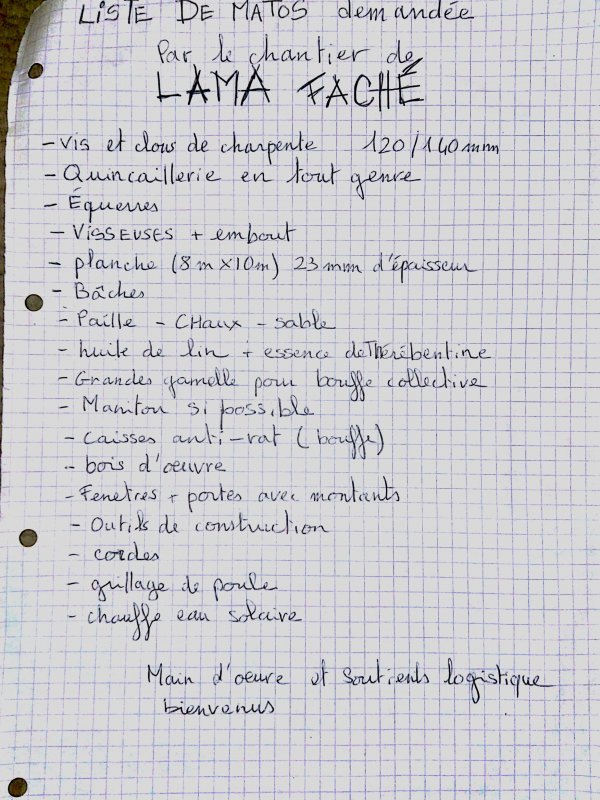 LISTE DE MATOS demandée
Par le chantier de
LAMA FACHÉ
- Vis et clous de charpente 120/140mm
- Quincaillerie en tout genre
- Équerres
- VISSEUSES + embout
- planche (8m x 10m) 23 mm d'épaisseur
- Bâches
- Paille - CHaux - sable
- huile de lin + essence de Thérébentine
- Grandes gamelle pour bouffe collective
- Maniton si possible
- Caisses anti-rat (bouffe)
- bois d'oeuvre
- Fenetres + portes avec montants
- Outils de construction
- cordes
- grillage de poule
- chauffe eau solaire
Main d'oeuvre et Soutients logistique
bienvenus